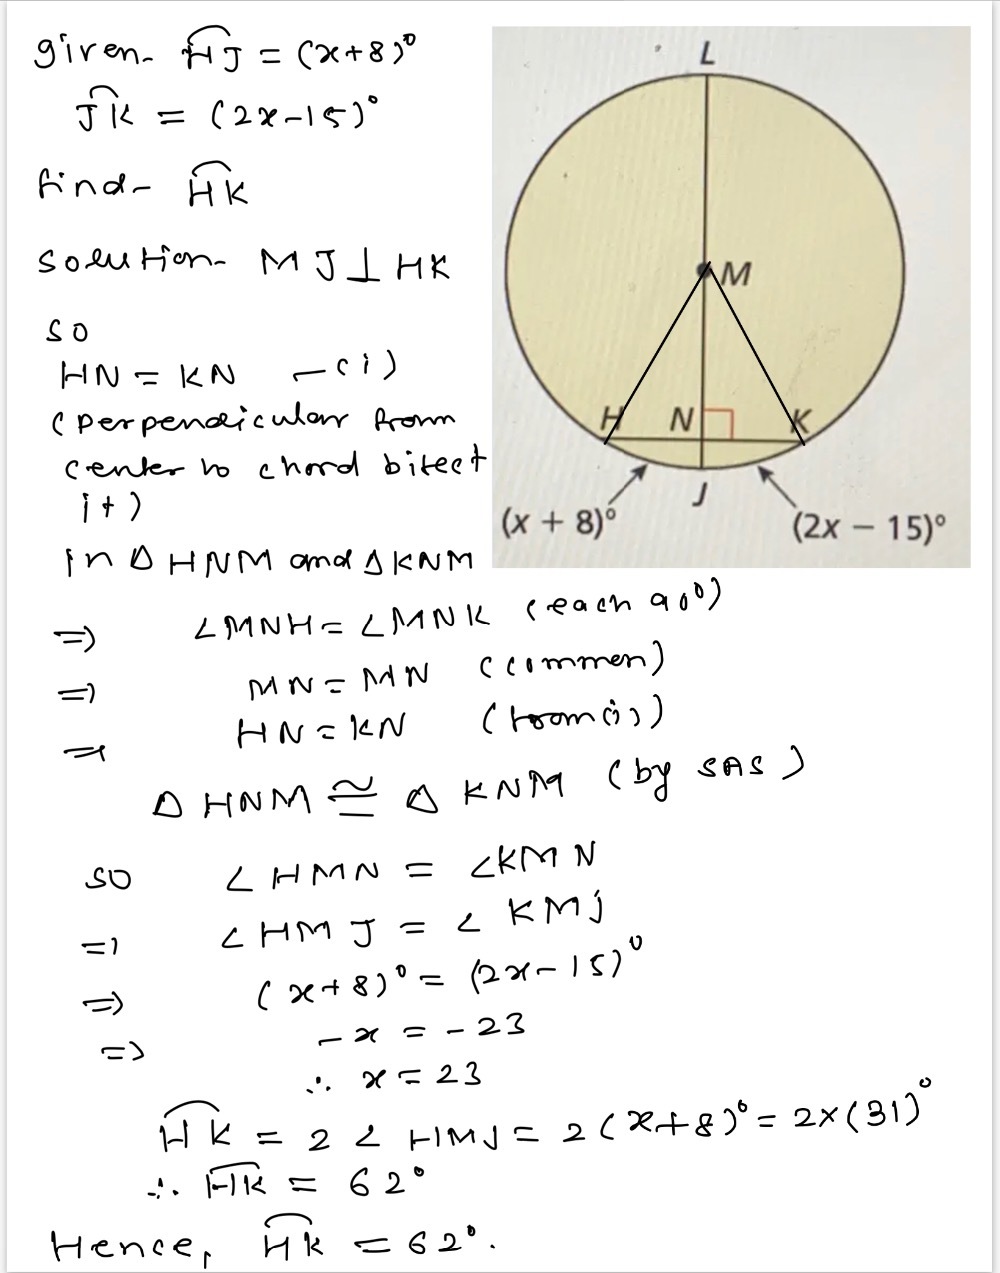 given- HJ = (x+8)°
JK = (2x-15)°
find- HK
solution- MJ ⊥ HK
so
HN = KN —(i)
(perpendicular from
center to chord bisect
it)
in Δ HNM and Δ KNM
⇒ ∠MNH = ∠MNK (each 90°)
⇒ MN = MN (common)
⇒ HN = KN (from (i))
Δ HNM ≅ Δ KNM (by SAS)
so ∠HMN = ∠KMN
⇒ ∠HMJ = ∠KMJ
⇒ (x+8)° = (2x-15)°
⇒ -x = -23
∴ x = 23
HK = 2∠HMJ = 2(x+8)° = 2×(31)°
∴ HK = 62°
Hence, HK = 62°.
L
M
H N K
J
(x + 8)° (2x – 15)°